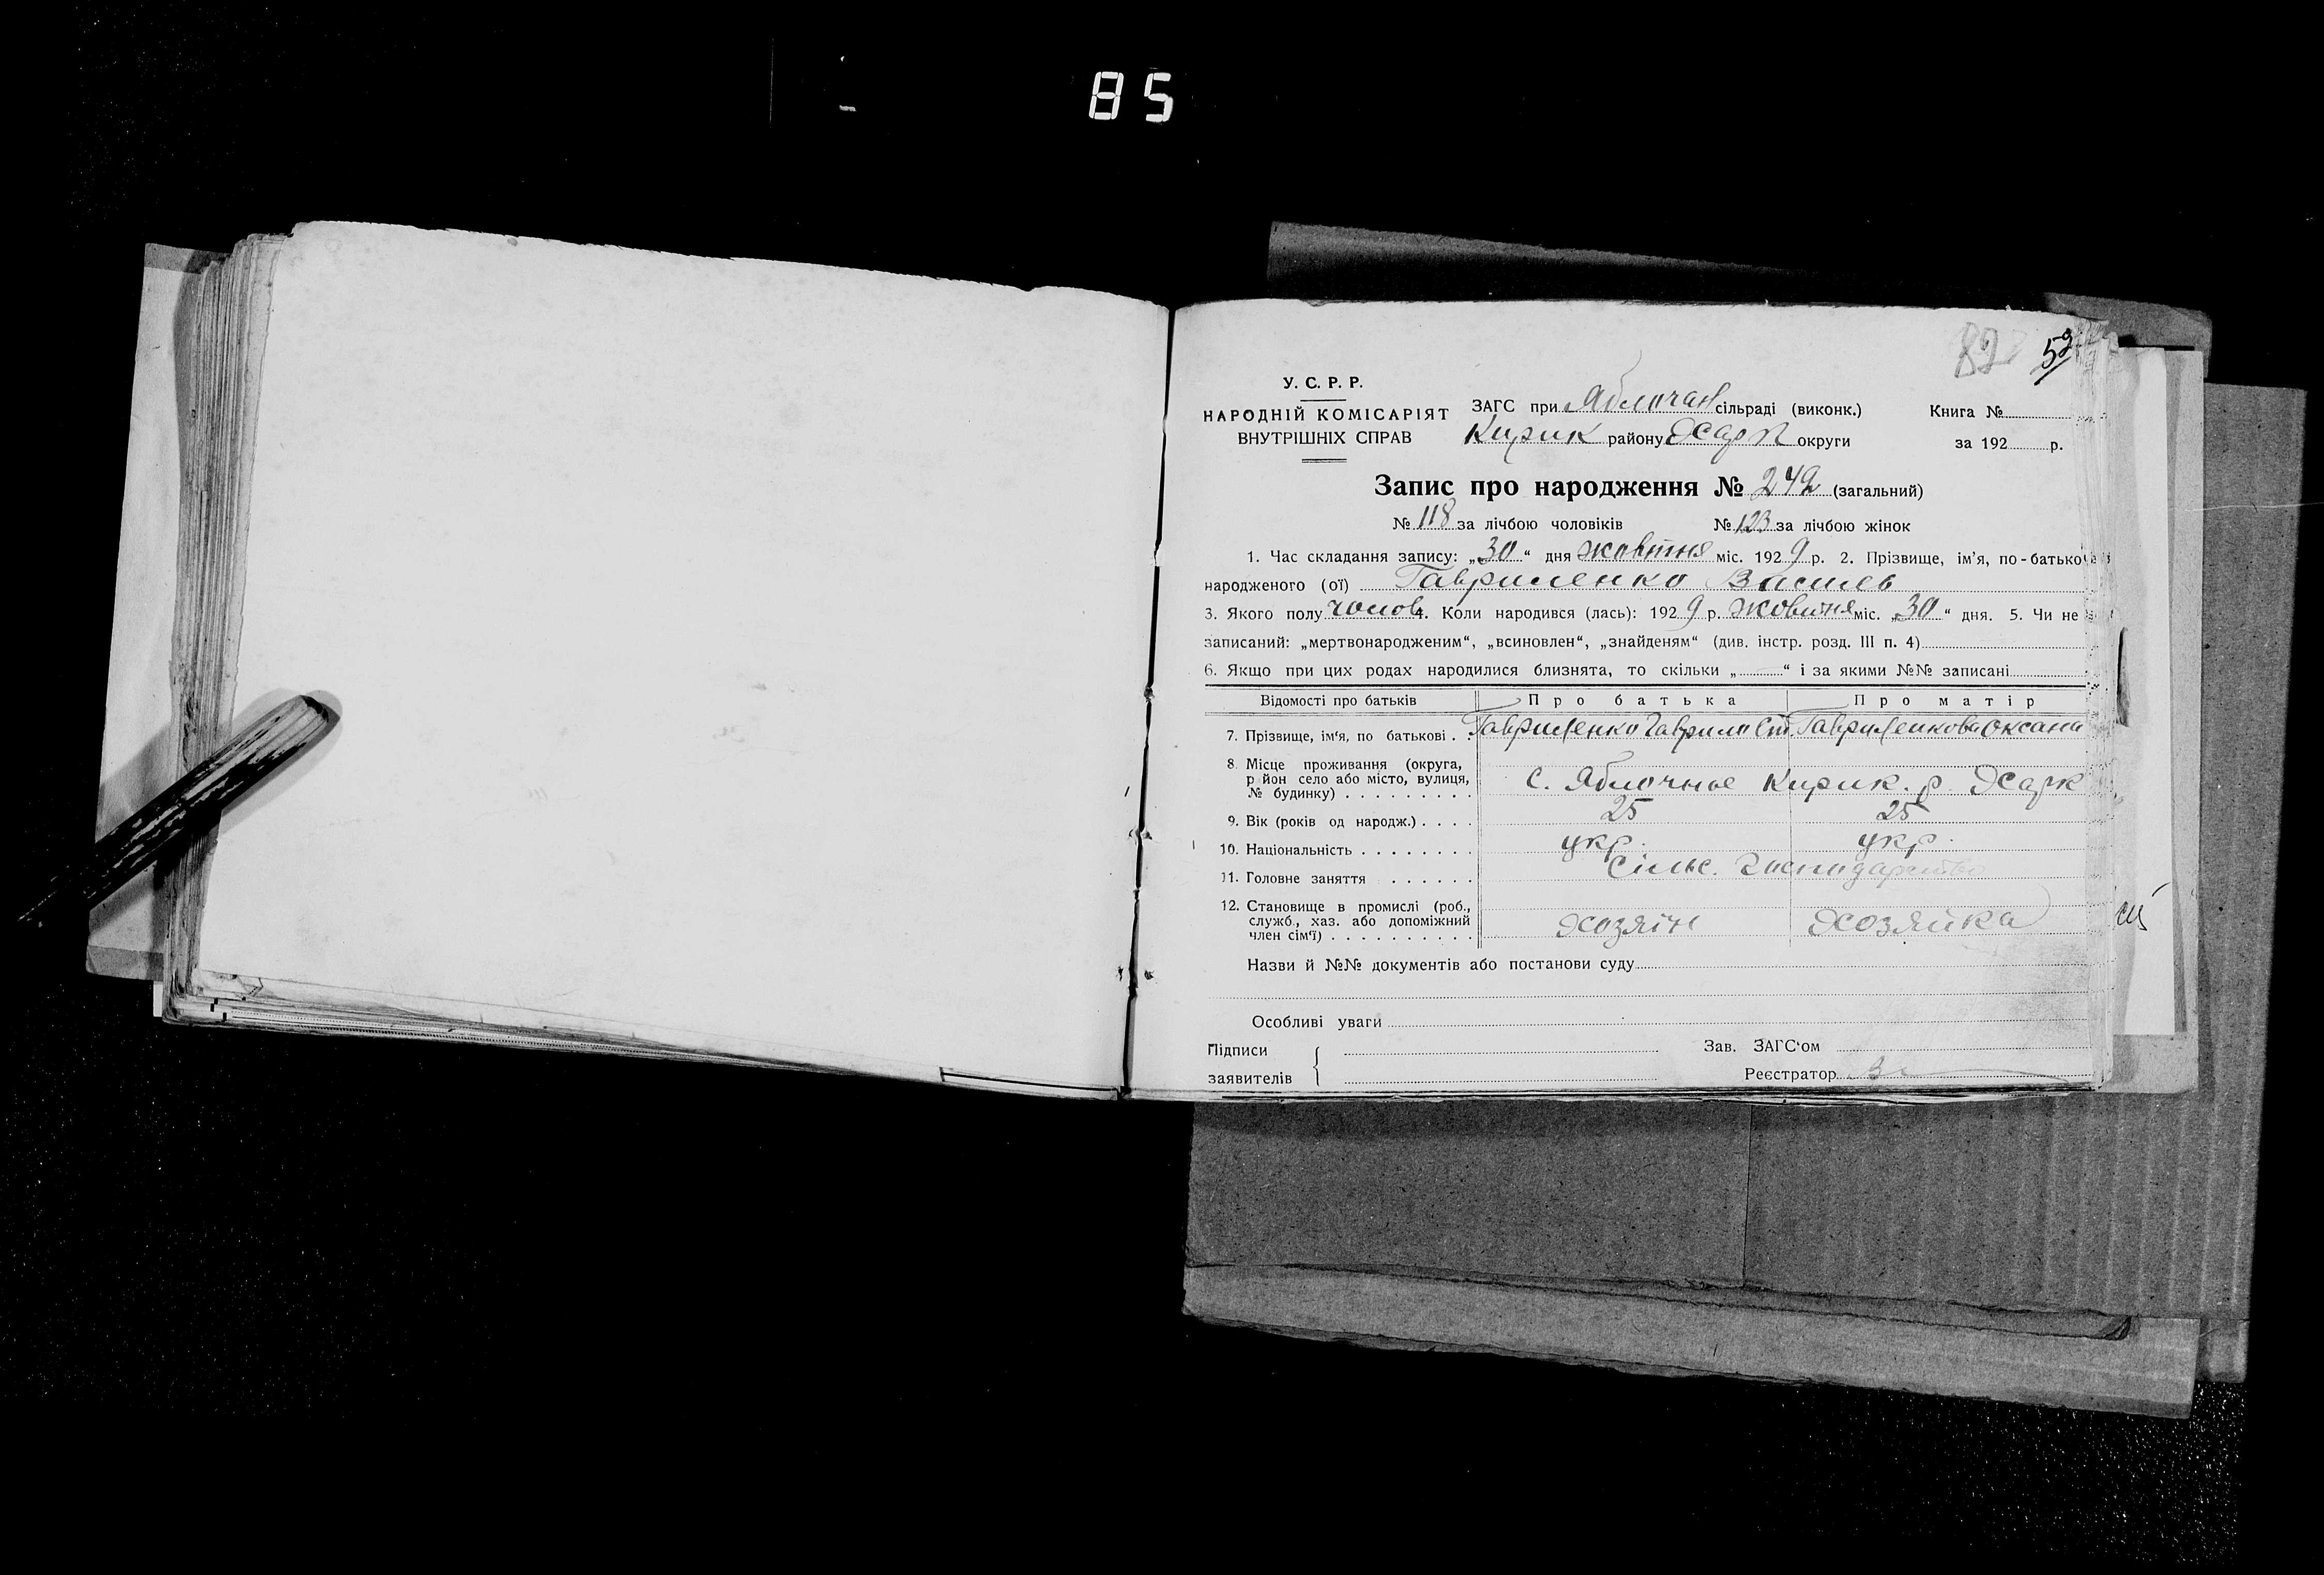 85
82 52
У. С. Р. Р.
НАРОДНІЙ КОМІСАРІЯТ
ВНУТРІШНІХ СПРАВ
ЗАГС при Яблочан сільраді (виконк.) Книга №
Кирик району Харк округи за 192 р.
Запис про народження № 242 (загальний)
№ 118 за лічбою чоловіків № 123 за лічбою жінок
1. Час складання запису: „30“ дня жовтня міс. 1929 р. 2. Прізвище, ім'я, по-батькові
народженого (ої) Гавриленко Василь
3. Якого полу чолов 4. Коли народився (лась): 1929 р. жовтня міс. „30“ дня. 5. Чи не
записаний: „мертвонародженим“, „всиновлен“, „знайденям“ (див. інстр. розд. III п. 4)
6. Якщо при цих родах народилися близнята, то скільки „ “ і за якими №№ записані
Відомості про батьків Про батька Про матір
7. Прізвище, ім'я, по батькові . . Гавриленко Гаврило Ст. Гавриленкова Оксана
8. Місце проживання (округа,
р йон село або місто, вулиця,
№ будинку) . . . . . . . . . с. Яблочное Кирик. р. Харк
9. Вік (років од народж.) . . . . 25 25
10. Національність . . . . . . . . укр. укр.
11. Головне заняття . . . . . . Сільс. Господарство
12. Становище в промислі (роб.,
служб., хаз. або допоміжний
член сім'ї) . . . . . . . . . . хозяін хозяйка
Назви й №№ документів або постанови суду
Особливі уваги
Підписи Зав. ЗАГС'ом
заявителів Реєстратор